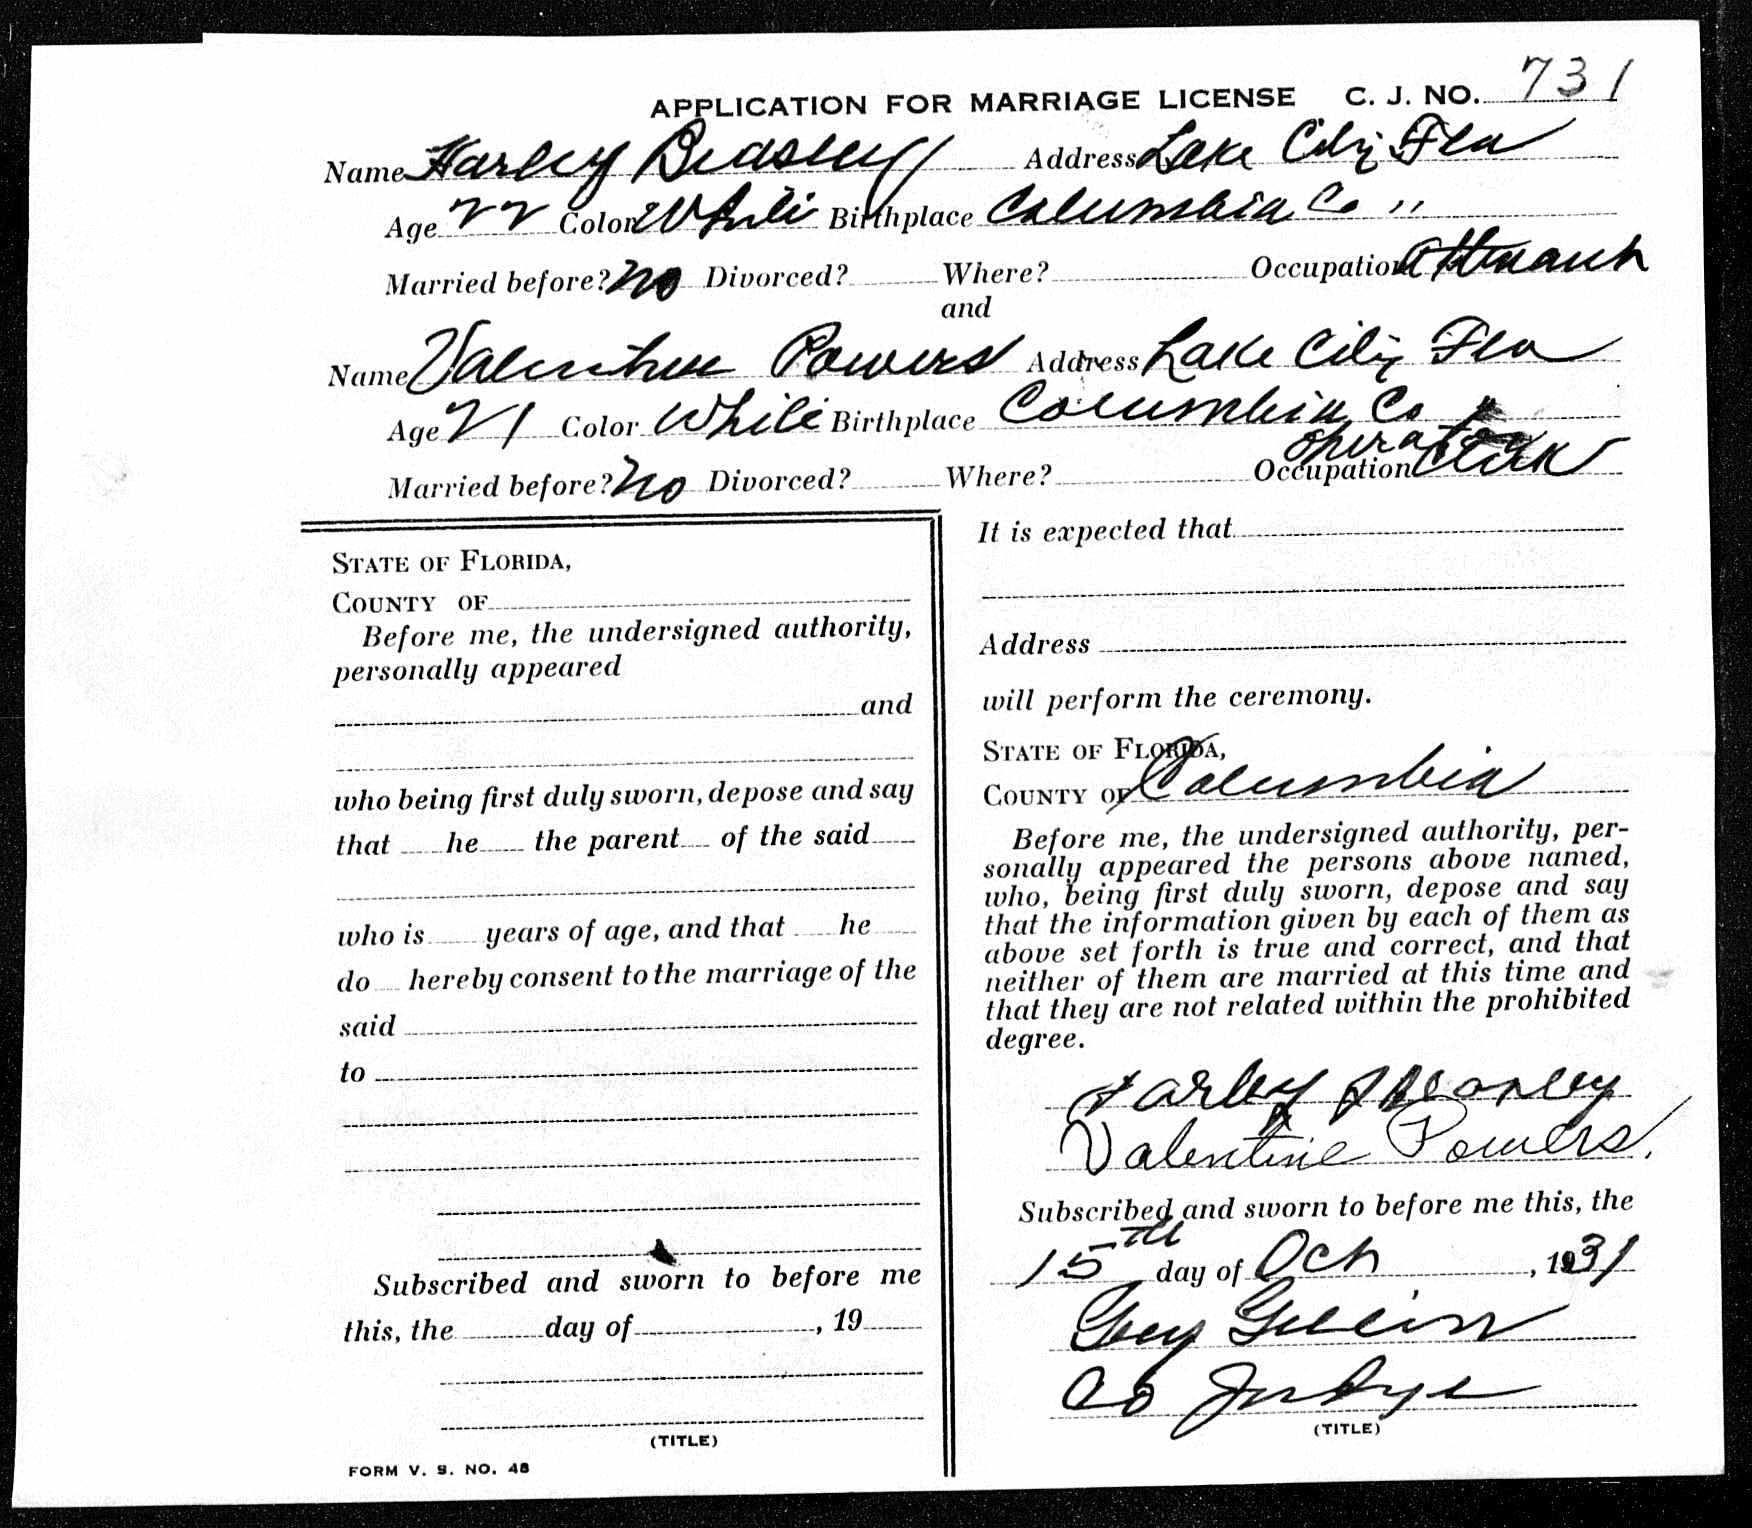 APPLICATION FOR MARRIAGE LICENSE C. J. NO. 731
Name Harley Beasley Address Lake City Fla
Age 22 Color White Birthplace Columbia Co "
Married before? no Divorced? Where? Occupation
and
Name Valentine Powers Address Lake City Fla
Age 21 Color White Birthplace Columbia Co "
operator
Married before? no Divorced? Where? Occupation Clerk
STATE OF FLORIDA,
COUNTY OF
Before me, the undersigned authority,
personally appeared
and
who being first duly sworn, depose and say
that he the parent of the said
who is years of age, and that he
do hereby consent to the marriage of the
said
to
Subscribed and sworn to before me
this, the day of , 19
(TITLE)
FORM V. S. NO. 48
It is expected that
Address
will perform the ceremony.
STATE OF FLORIDA,
COUNTY OF Columbia
Before me, the undersigned authority, per-
sonally appeared the persons above named,
who, being first duly sworn, depose and say
that the information given by each of them as
above set forth is true and correct, and that
neither of them are married at this time and
that they are not related within the prohibited
degree.
Harley Beasley
Valentine Powers.
Subscribed and sworn to before me this, the
15th day of Oct, 1931
Guy Gillen
Co Judge
(TITLE)